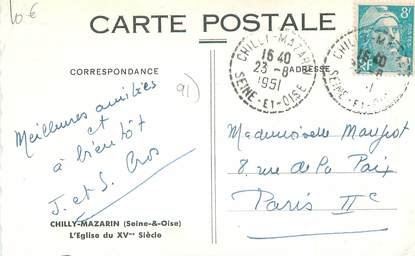 10 €
CARTE POSTALE
8F
RF
CHILLY-MAZARIN
16 40
23-8
1951
SEINE-ET-OISE
CHILLY-MAZARIN
SEINE-ET-OISE
CORRESPONDANCE
ADRESSE
91)
Meilleures amitiés
et
à bientôt
J. et S. Cros
Mademoiselle
8, rue de la Paix
Paris IIe
CHILLY-MAZARIN (Seine-&-Oise)
L'Eglise du XVme Siècle